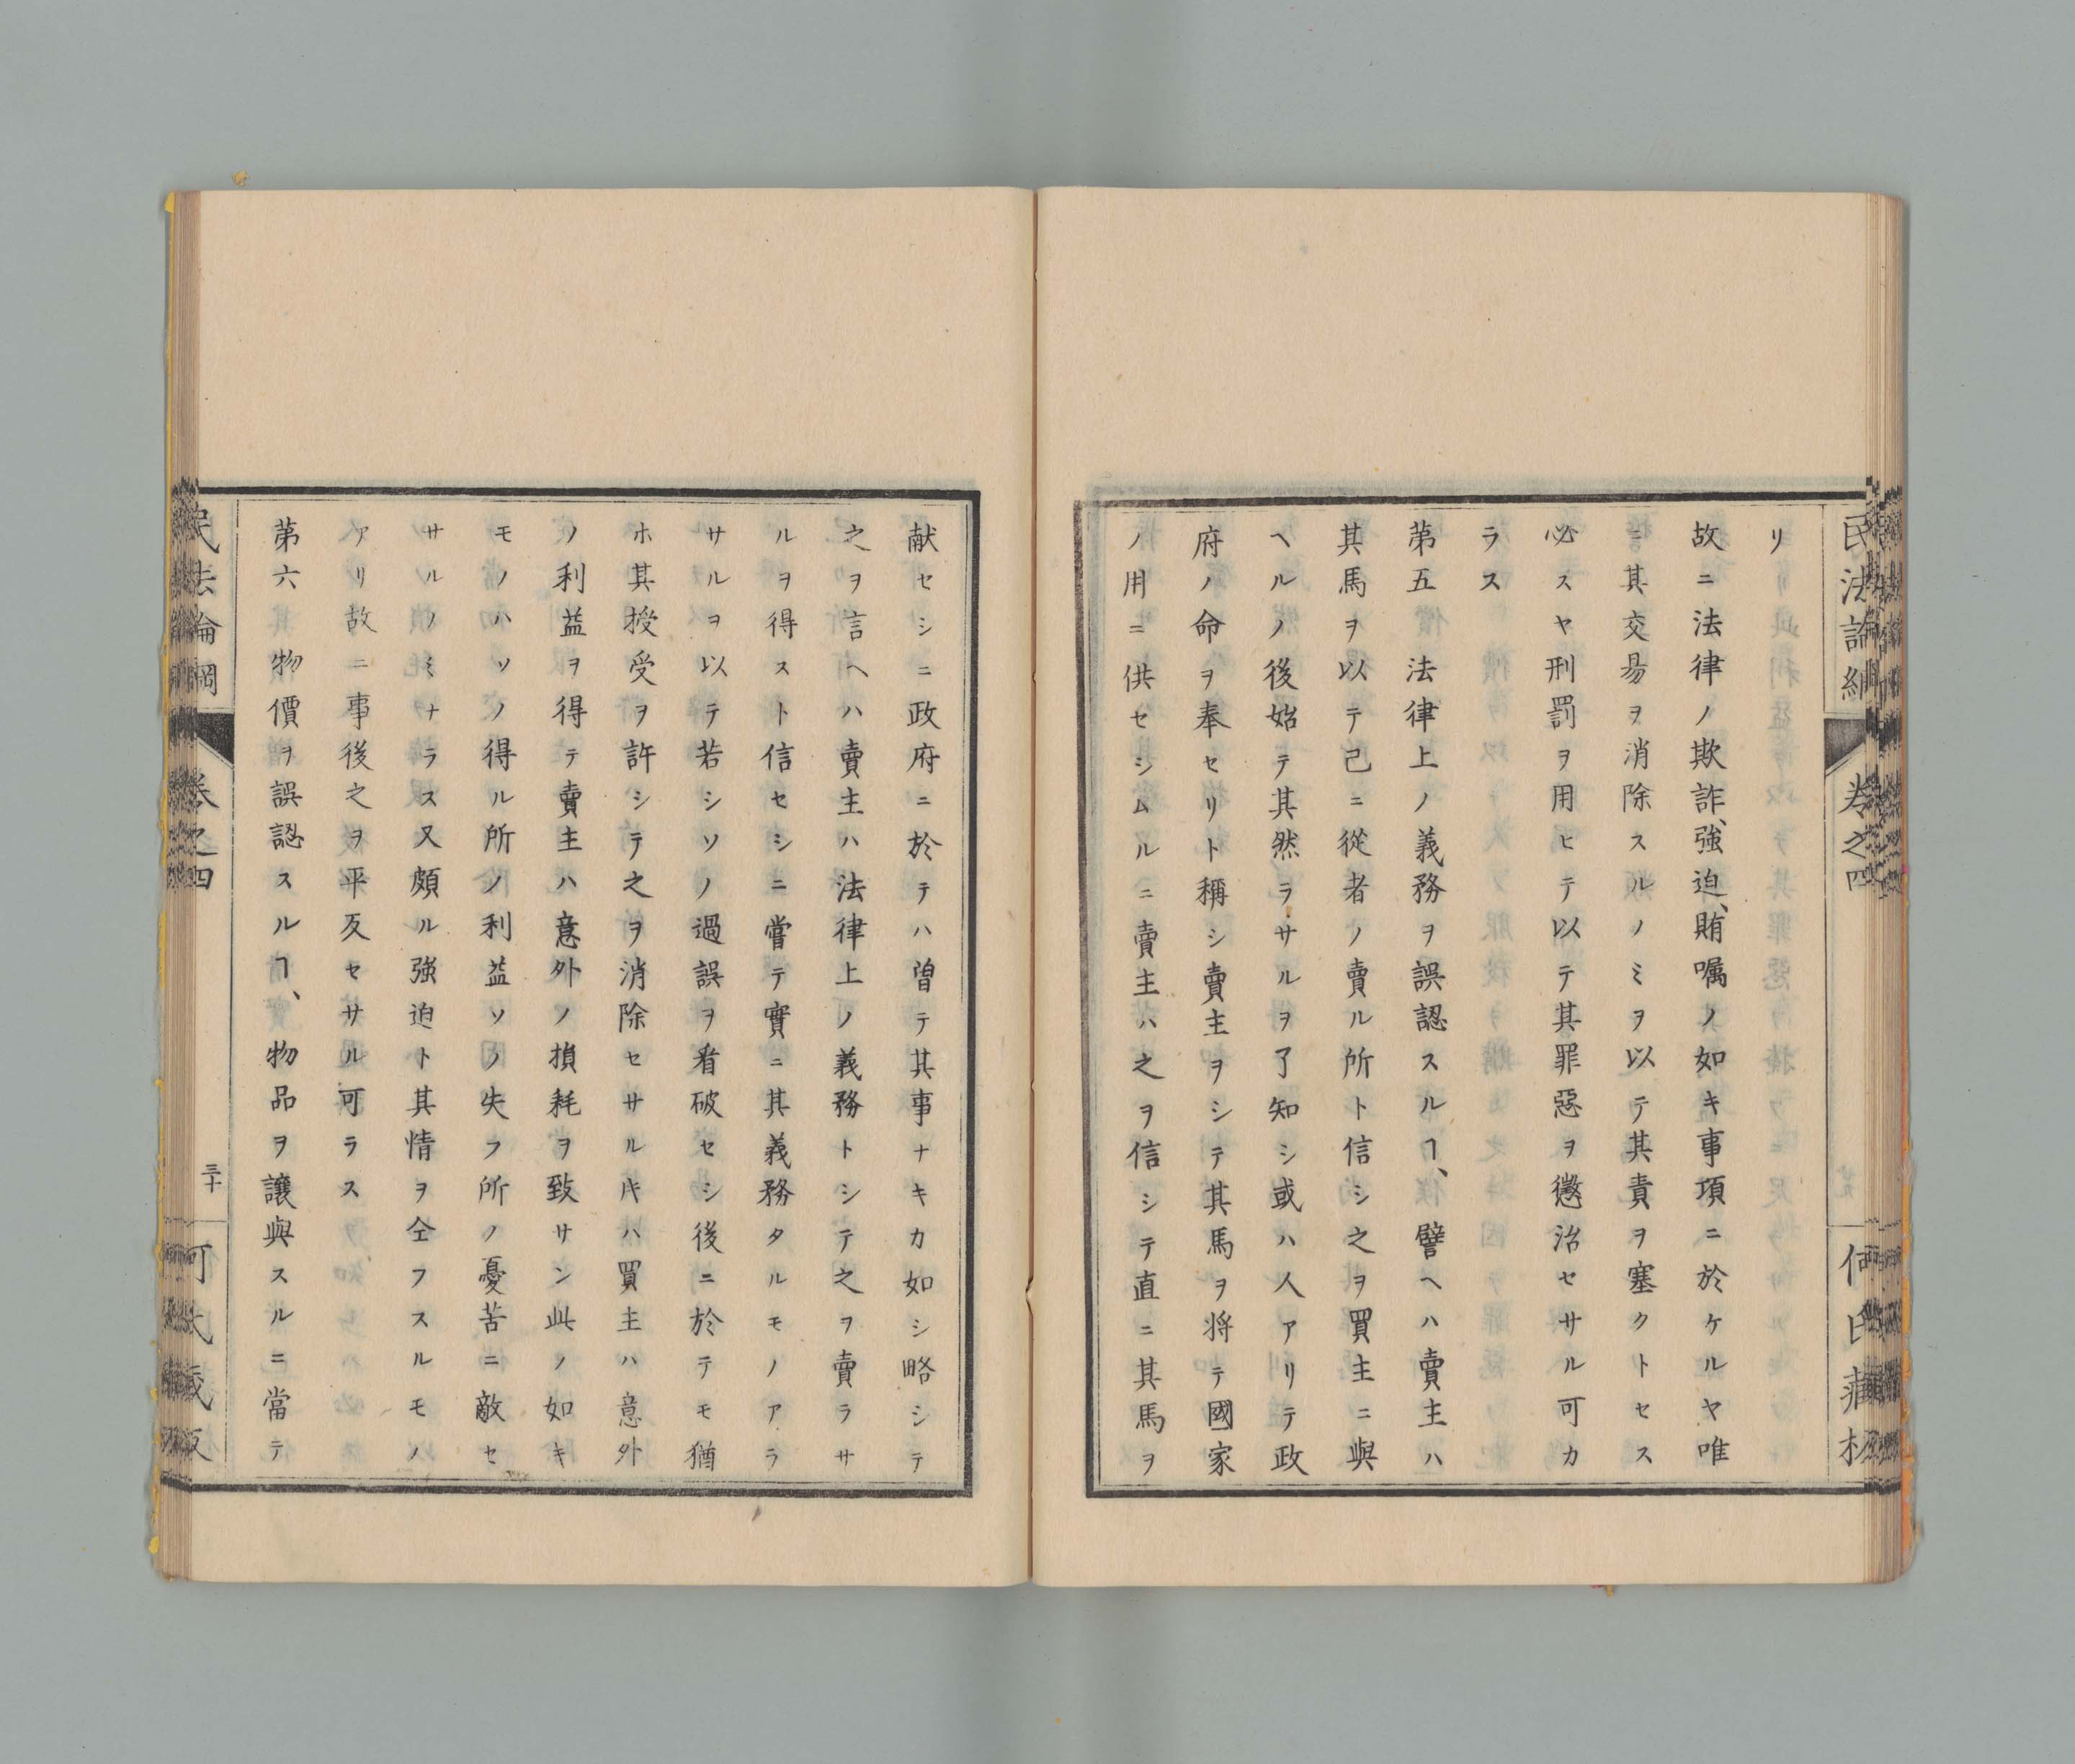 民法論綱
卷之四
何氏藏板
リ
故ニ法律ノ欺詐、強迫、賄嘱ノ如キ事項ニ於ケルヤ唯
ニ其交易ヲ消除スルノミヲ以テ其責ヲ塞クトセス
必スヤ刑罰ヲ用ヒテ以テ其罪惡ヲ懲治セサル可カ
ラス
第五 法律上ノ義務ヲ誤認スルヿ、 譬ヘハ賣主ハ
其馬ヲ以テ己ニ從者ノ賣ル所ト信シ之ヲ買主ニ與
ヘルノ後始テ其然ラサルヲ了知シ或ハ人アリテ政
府ノ命ヲ奉セリト稱シ賣主ヲシテ其馬ヲ将テ國家
ノ用ニ供セシムルニ賣主ハ之ヲ信シテ直ニ其馬ヲ
献セシニ政府ニ於テハ曽テ其事ナキカ如シ略シテ
之ヲ言ヘハ賣主ハ法律上ノ義務トシテ之ヲ賣ラサ
ルヲ得スト信セシニ嘗テ實ニ其義務タルモノアラ
サルヲ以テ若シソノ過誤ヲ看破セシ後ニ於テモ猶
ホ其授受ヲ許シテ之ヲ消除セサル𪜈ハ買主ハ意外
ノ利益ヲ得テ賣主ハ意外ノ損耗ヲ致サン此ノ如キ
モノハソノ得ル所ノ利益ソノ失フ所ノ憂苦ニ敵セ
サルノミナラス又頗ル強迫ト其情ヲ仝フスルモノ
アリ故ニ事後之ヲ平反セサル可ラス
第六 物價ヲ誤認スルヿ、 物品ヲ讓與スルニ當テ
民法論綱
卷之四
三十
何氏藏版